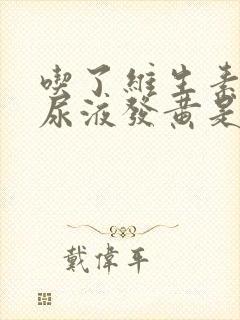 喫了維生素
尿液發黃是
戴偉平